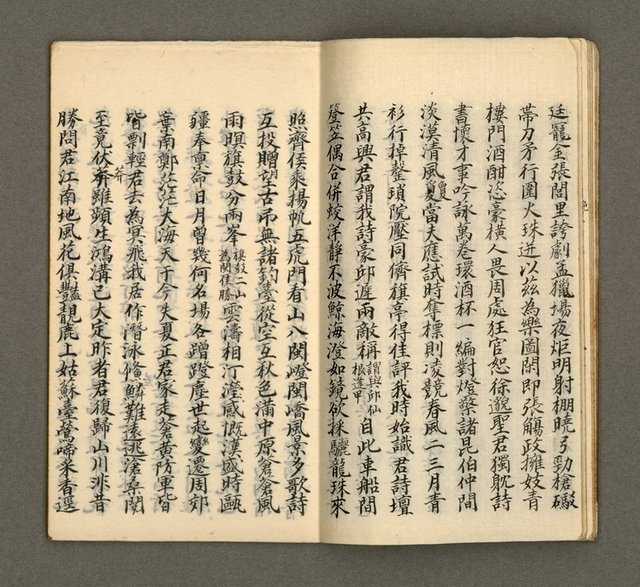 延寵金張閭里誇劇孟獵場夜炬明射棚曉弓勁槍礮
帶刀矛行圍火珠迸以茲為樂國閒即張觴政擁妓青
樓門酒酣恣豪橫人畏周處狂官恕徐邈聖君獨耽詩
書懷才事吟詠萬卷環酒杯一編對燈檠諸昆伯仲間
淡漠清風夐夏當大應試時奪標則凌競春風二三月青
衫行掉鞶瑣院壓同儕旗亭得佳評我時始識君詩壇
共高興君謂我詩豪邱遲兩敵稱謂與邱仙根逢甲自此車船間
簦笠偶合併蛟洋靜不波鯨海澄如鏡欲採驪龍珠來
照齊侯乘揚帆五虎門看山八閩嶝閩嶠風景多歌詩
互投贈望古弔無諸釣臺從空互秋色滿中原蒼蒼風
雨瞑旗鼓分兩峯旗鼓二山為閩佳勝雲濤相汀瀅感慨漢盛時甌
疆奉重命日月曾幾何名場各蹭蹬塵世起變遷周郊
葉南鄭茫茫大海天于今失夏正君家走蒼黃防軍皆
皆剽輕君去為冥飛我居作潛泳鯈鱗難遠逃滄桑閱
至竟伏莽莽雖頻生鴻溝已大定昨者君復歸山川非昔
勝問君江南地風花俱豔靚鹿上姑蘇臺鶯啼采香逕